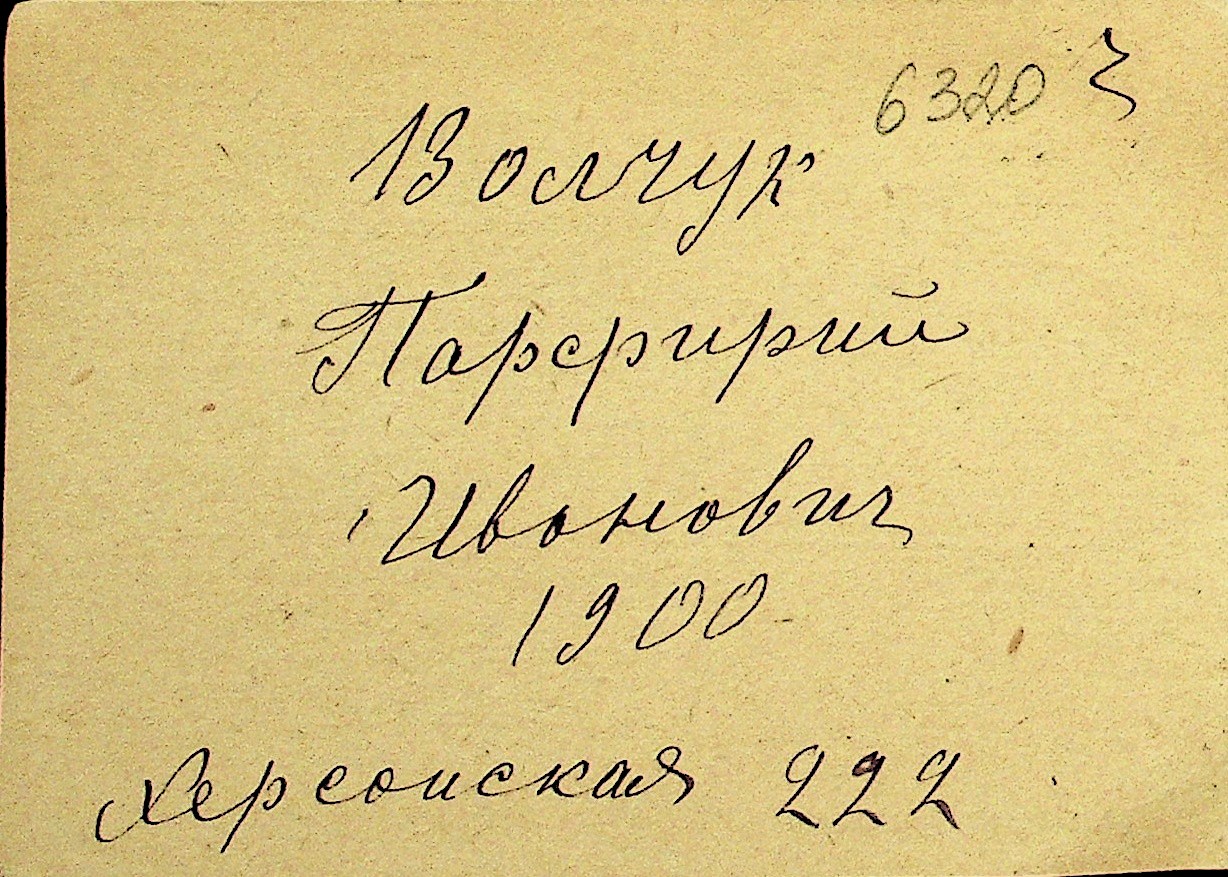 6320
Волчук
Парфирий
Иванович
1900
Херсонская 222